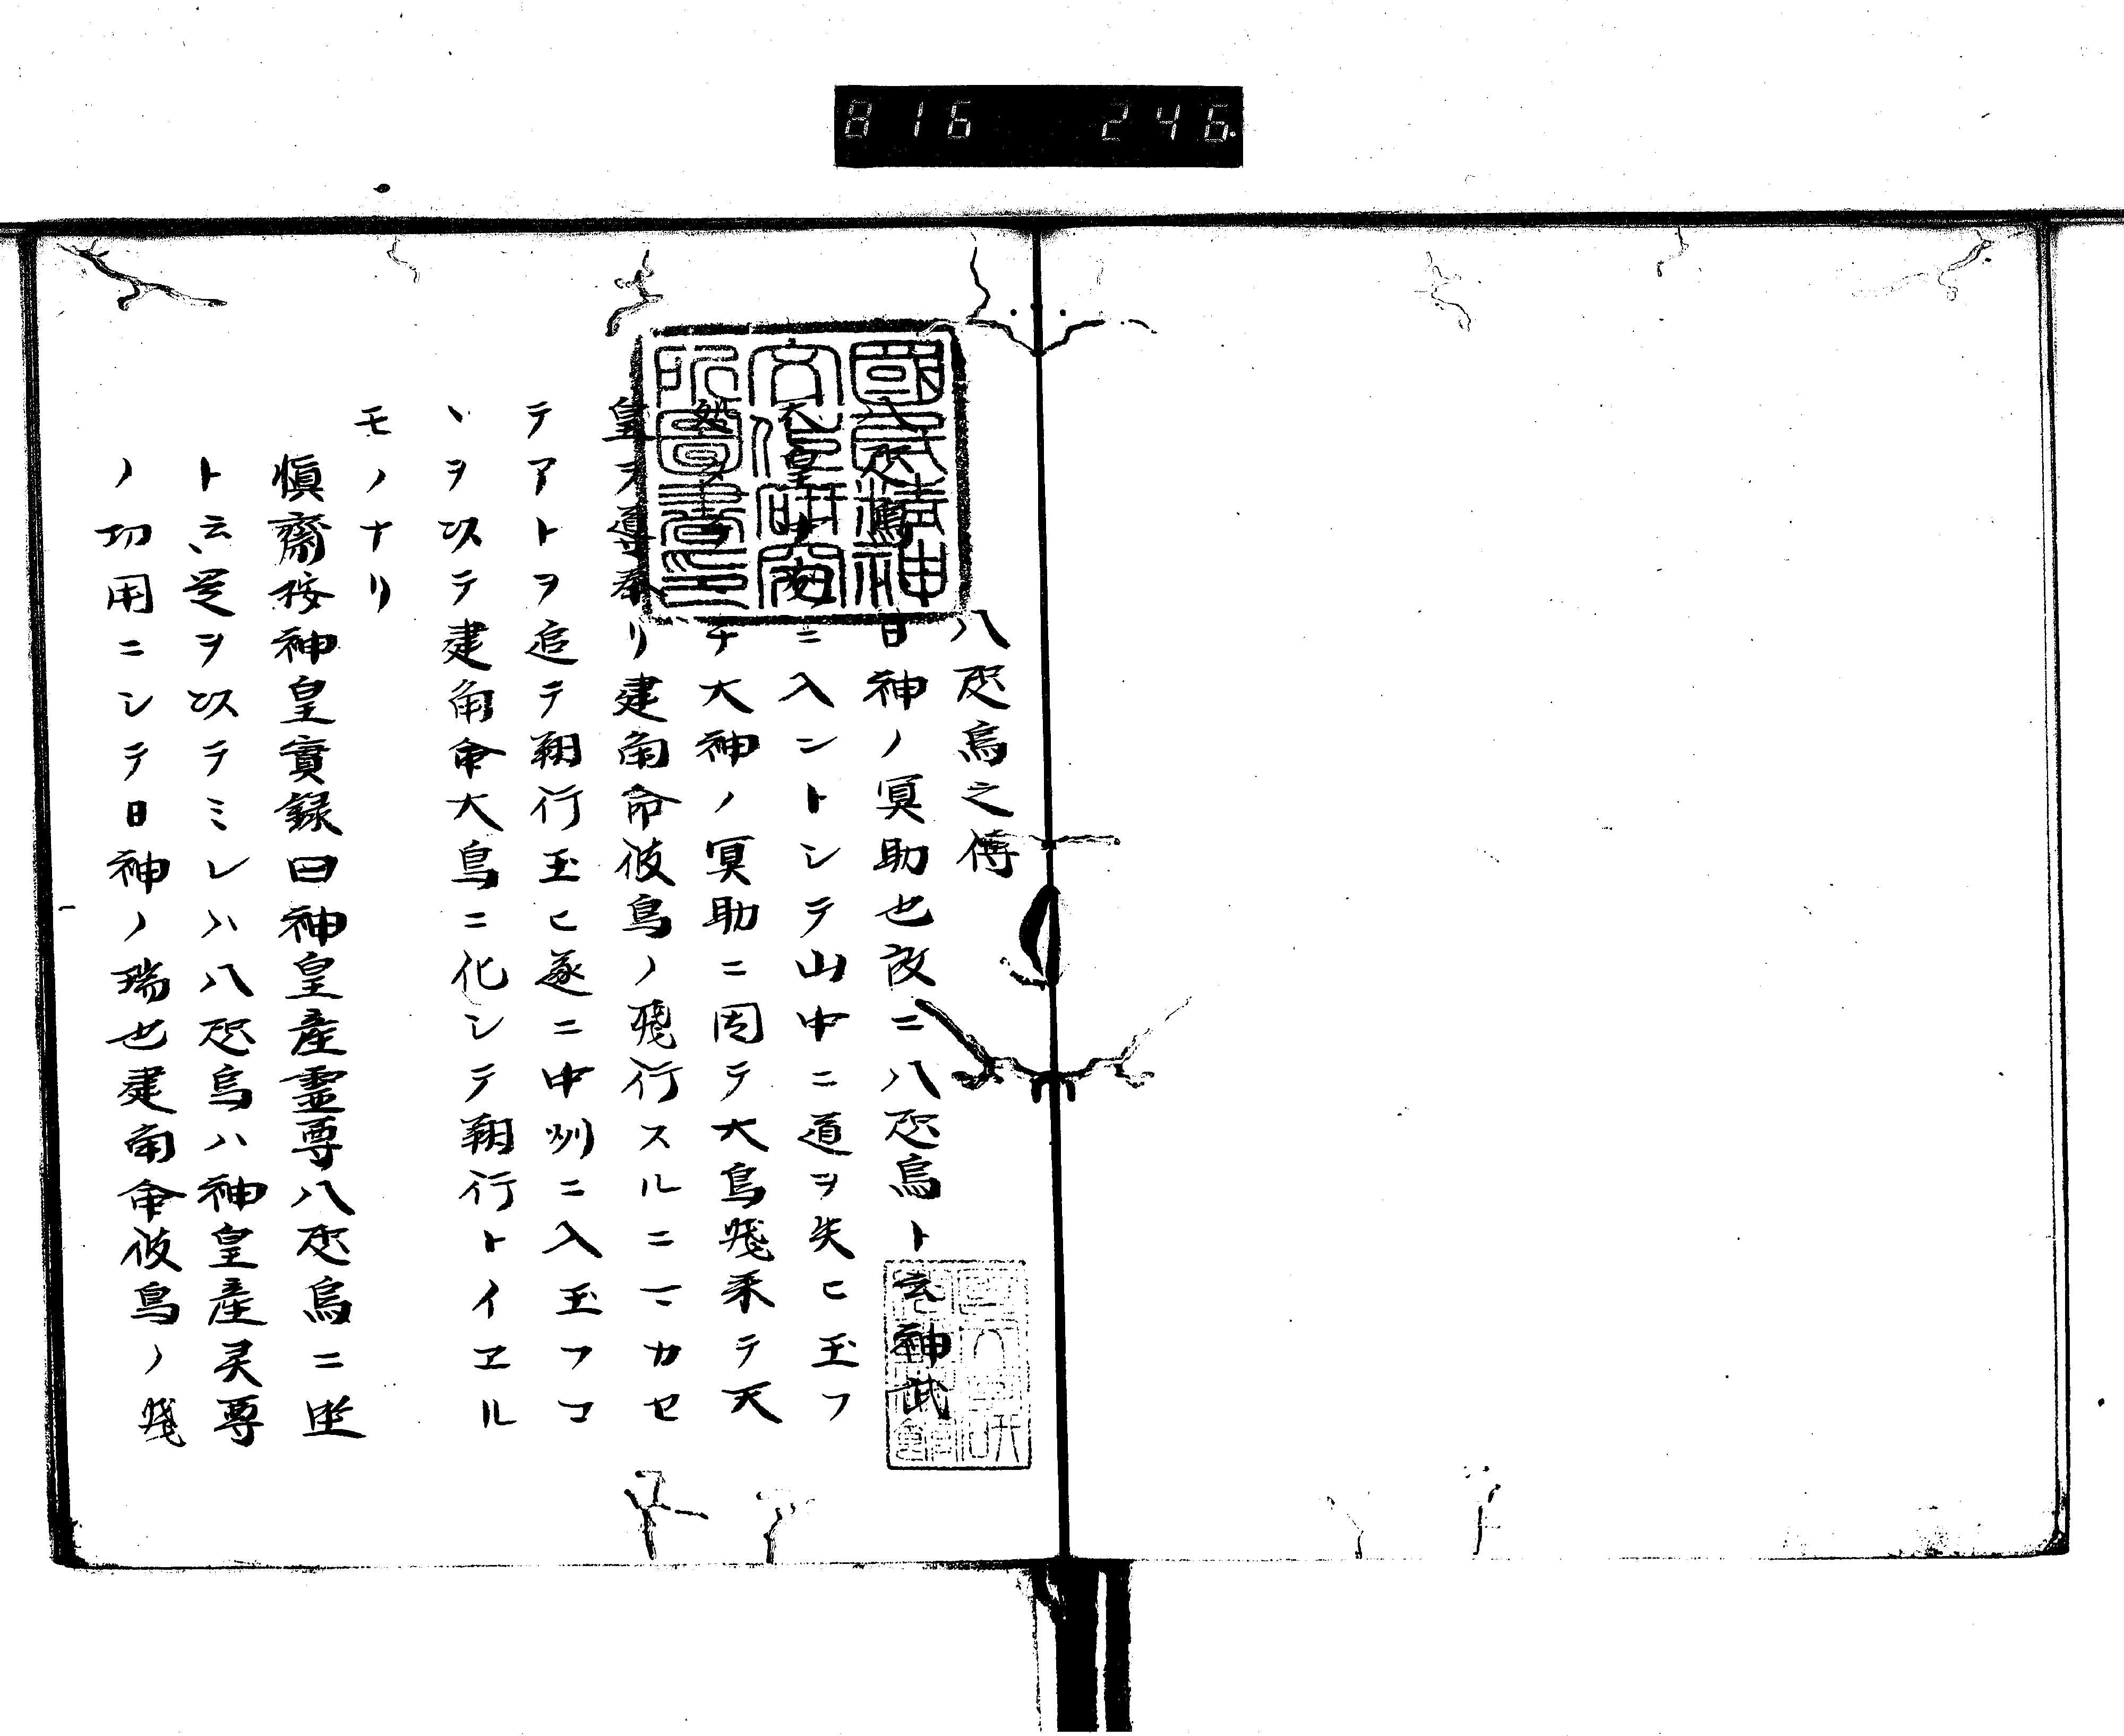 816 246
八咫烏之傳
八咫烏ハ日神ノ冥助也故ニ八咫烏ト云神武
天皇中州ニ入ントシテ山中ニ道ヲ失ヒ玉フ
大神ノ冥助ニ因テ大鳥飛来テ天
皇ヲ導奉リ建角命彼鳥ノ飛行スルニマカセ
テアトヲ追テ翔行玉ヒ遂ニ中州ニ入玉フコ
ヽヲ以テ建角命大鳥ニ化シテ翔行トイヱル
モノナリ
愼齋按神皇實録曰神皇産霊尊八咫烏ニ坐
ト云是ヲ以テミレハ八咫烏ハ神皇産灵尊
ノ功用ニシテ日神ノ瑞也建角命彼鳥ノ飛
國民精神文化研究所圖書印